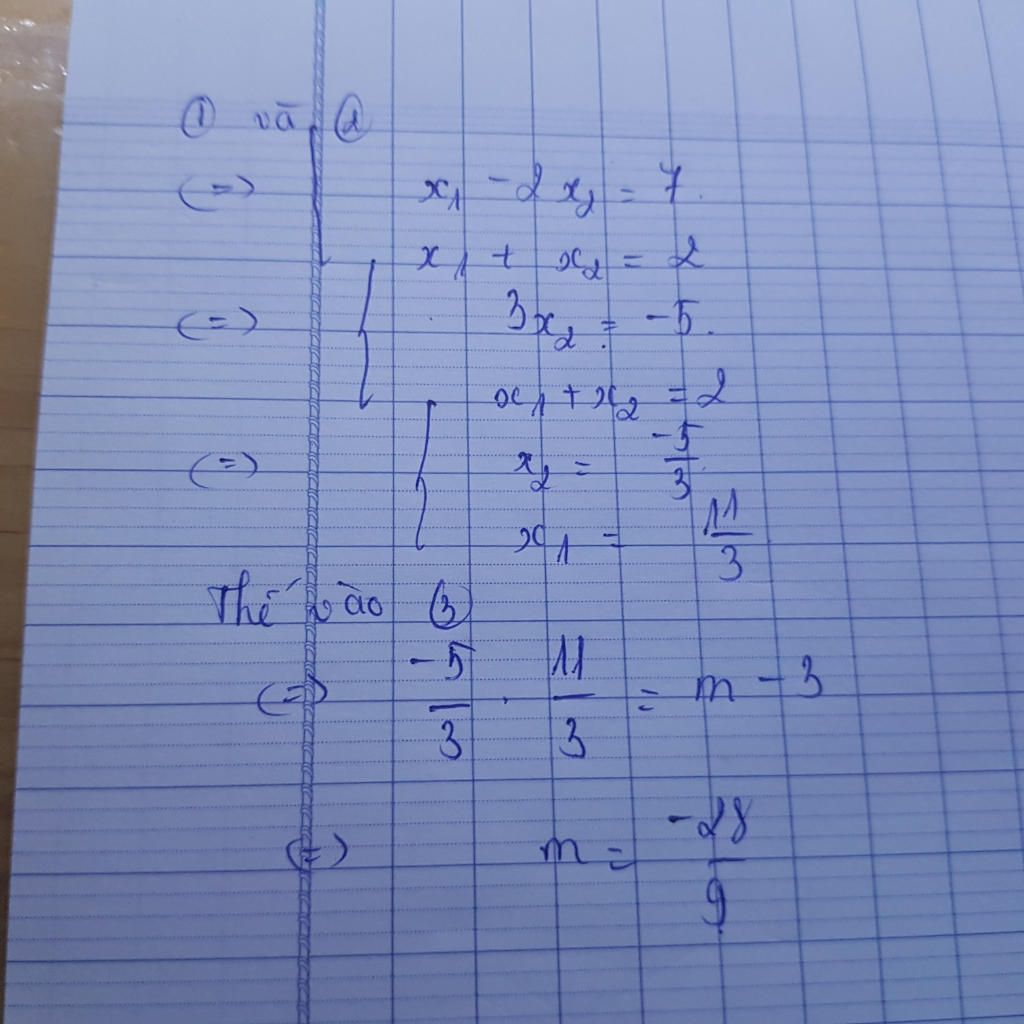 ① và ②
(=) x₁ - 2x₂ = 7.
x₁ + x₂ = 2
(=) { 3x₂ = -5.
x₁ + x₂ = 2
(=) { x₂ = -5/3
x₁ = 11/3
Thế vào ③
(=) -5/3 . 11/3 = m - 3
(=) m = -28/9